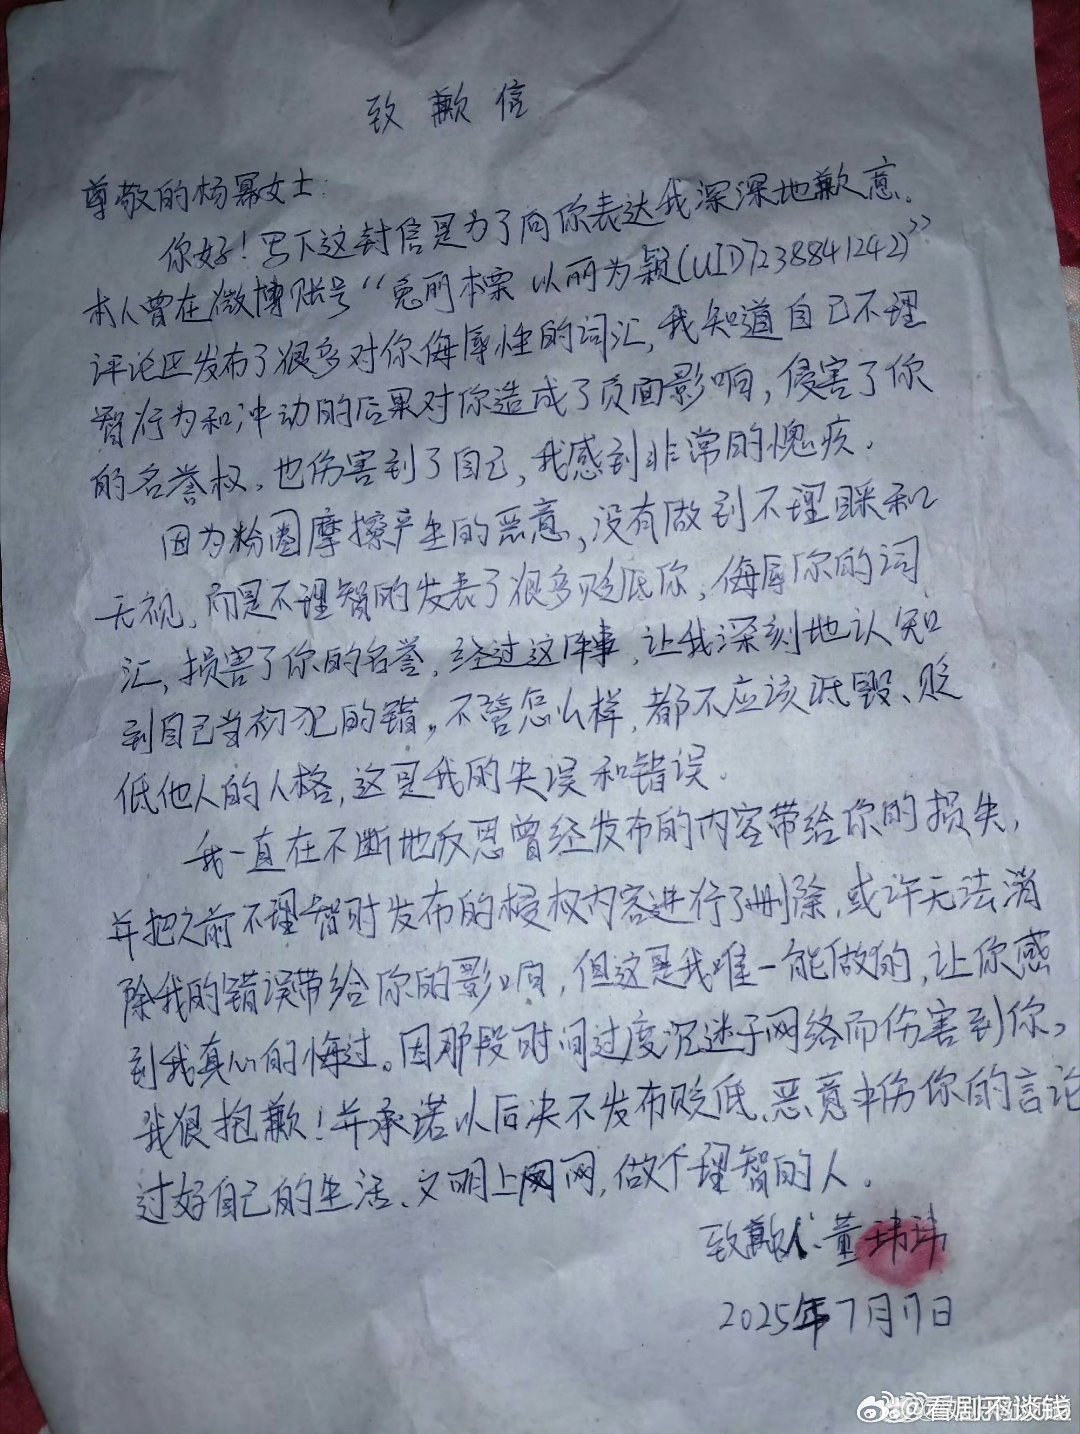 致歉信
尊敬的杨幂女士:
你好!写下这封信是为了向你表达我深深地歉意.
本人曾在微博账号“兔丽本票 以丽为颖(UID7238841242)”
评论区发布了很多对你侮辱性的词汇,我知道自己不理
智行为和冲动的后果对你造成了负面影响,侵害了你
的名誉权,也伤害到了自己,我感到非常的愧疚.
因为粉圈摩擦产生的恶意,没有做到不理睬和
无视,而是不理智的发表了很多贬低你,侮辱你的词
汇,损害了你的名誉,经过这件事,让我深刻地认知
到自己当初犯的错。不管怎么样,都不应该诋毁、贬
低他人的人格,这是我的失误和错误.
我一直在不断地反思曾经发布的内容带给你的损失,
并把之前不理智时发布的侵权内容进行了删除,或许无法消
除我的错误带给你的影响,但这是我唯一能做的,让你感
到我真心的悔过。因那段时间过度沉迷于网络而伤害到你,
我很抱歉!并承诺以后决不发布贬低、恶意中伤你的言论
过好自己的生活、文明上网,做个理智的人.
致歉人:董玮玮
2025年7月17日
@看剧不谈钱